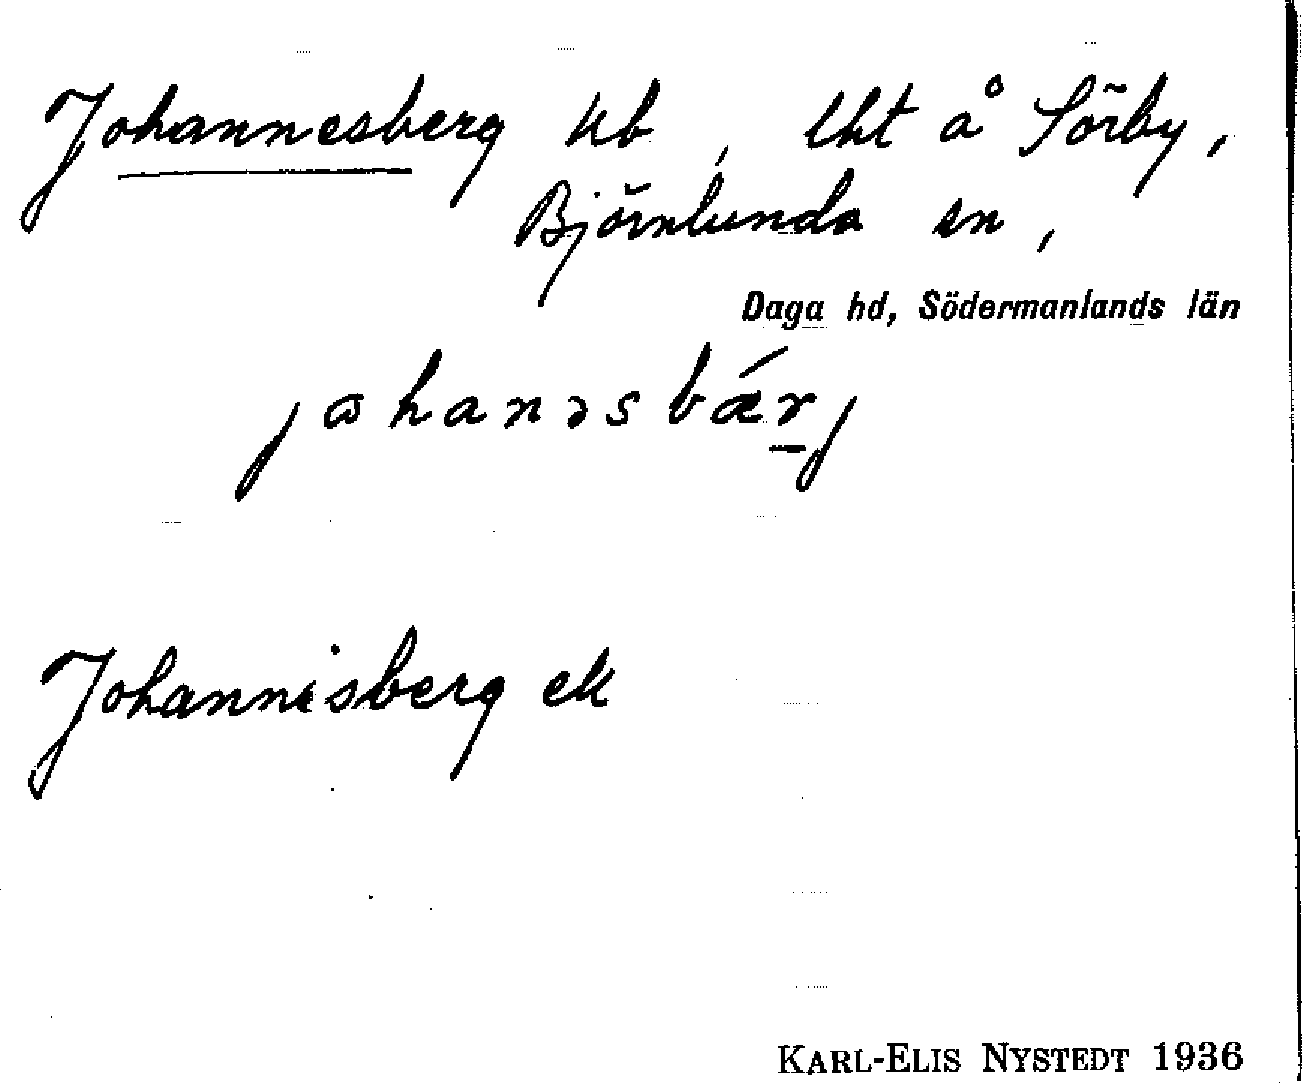 Johannesberg ub, lht å Sörby,
Björnlunda sn,
Daga hd, Södermanlands län
johanəsbǽrj
Johannisberg ek
KARL-ELIS NYSTEDT 1936